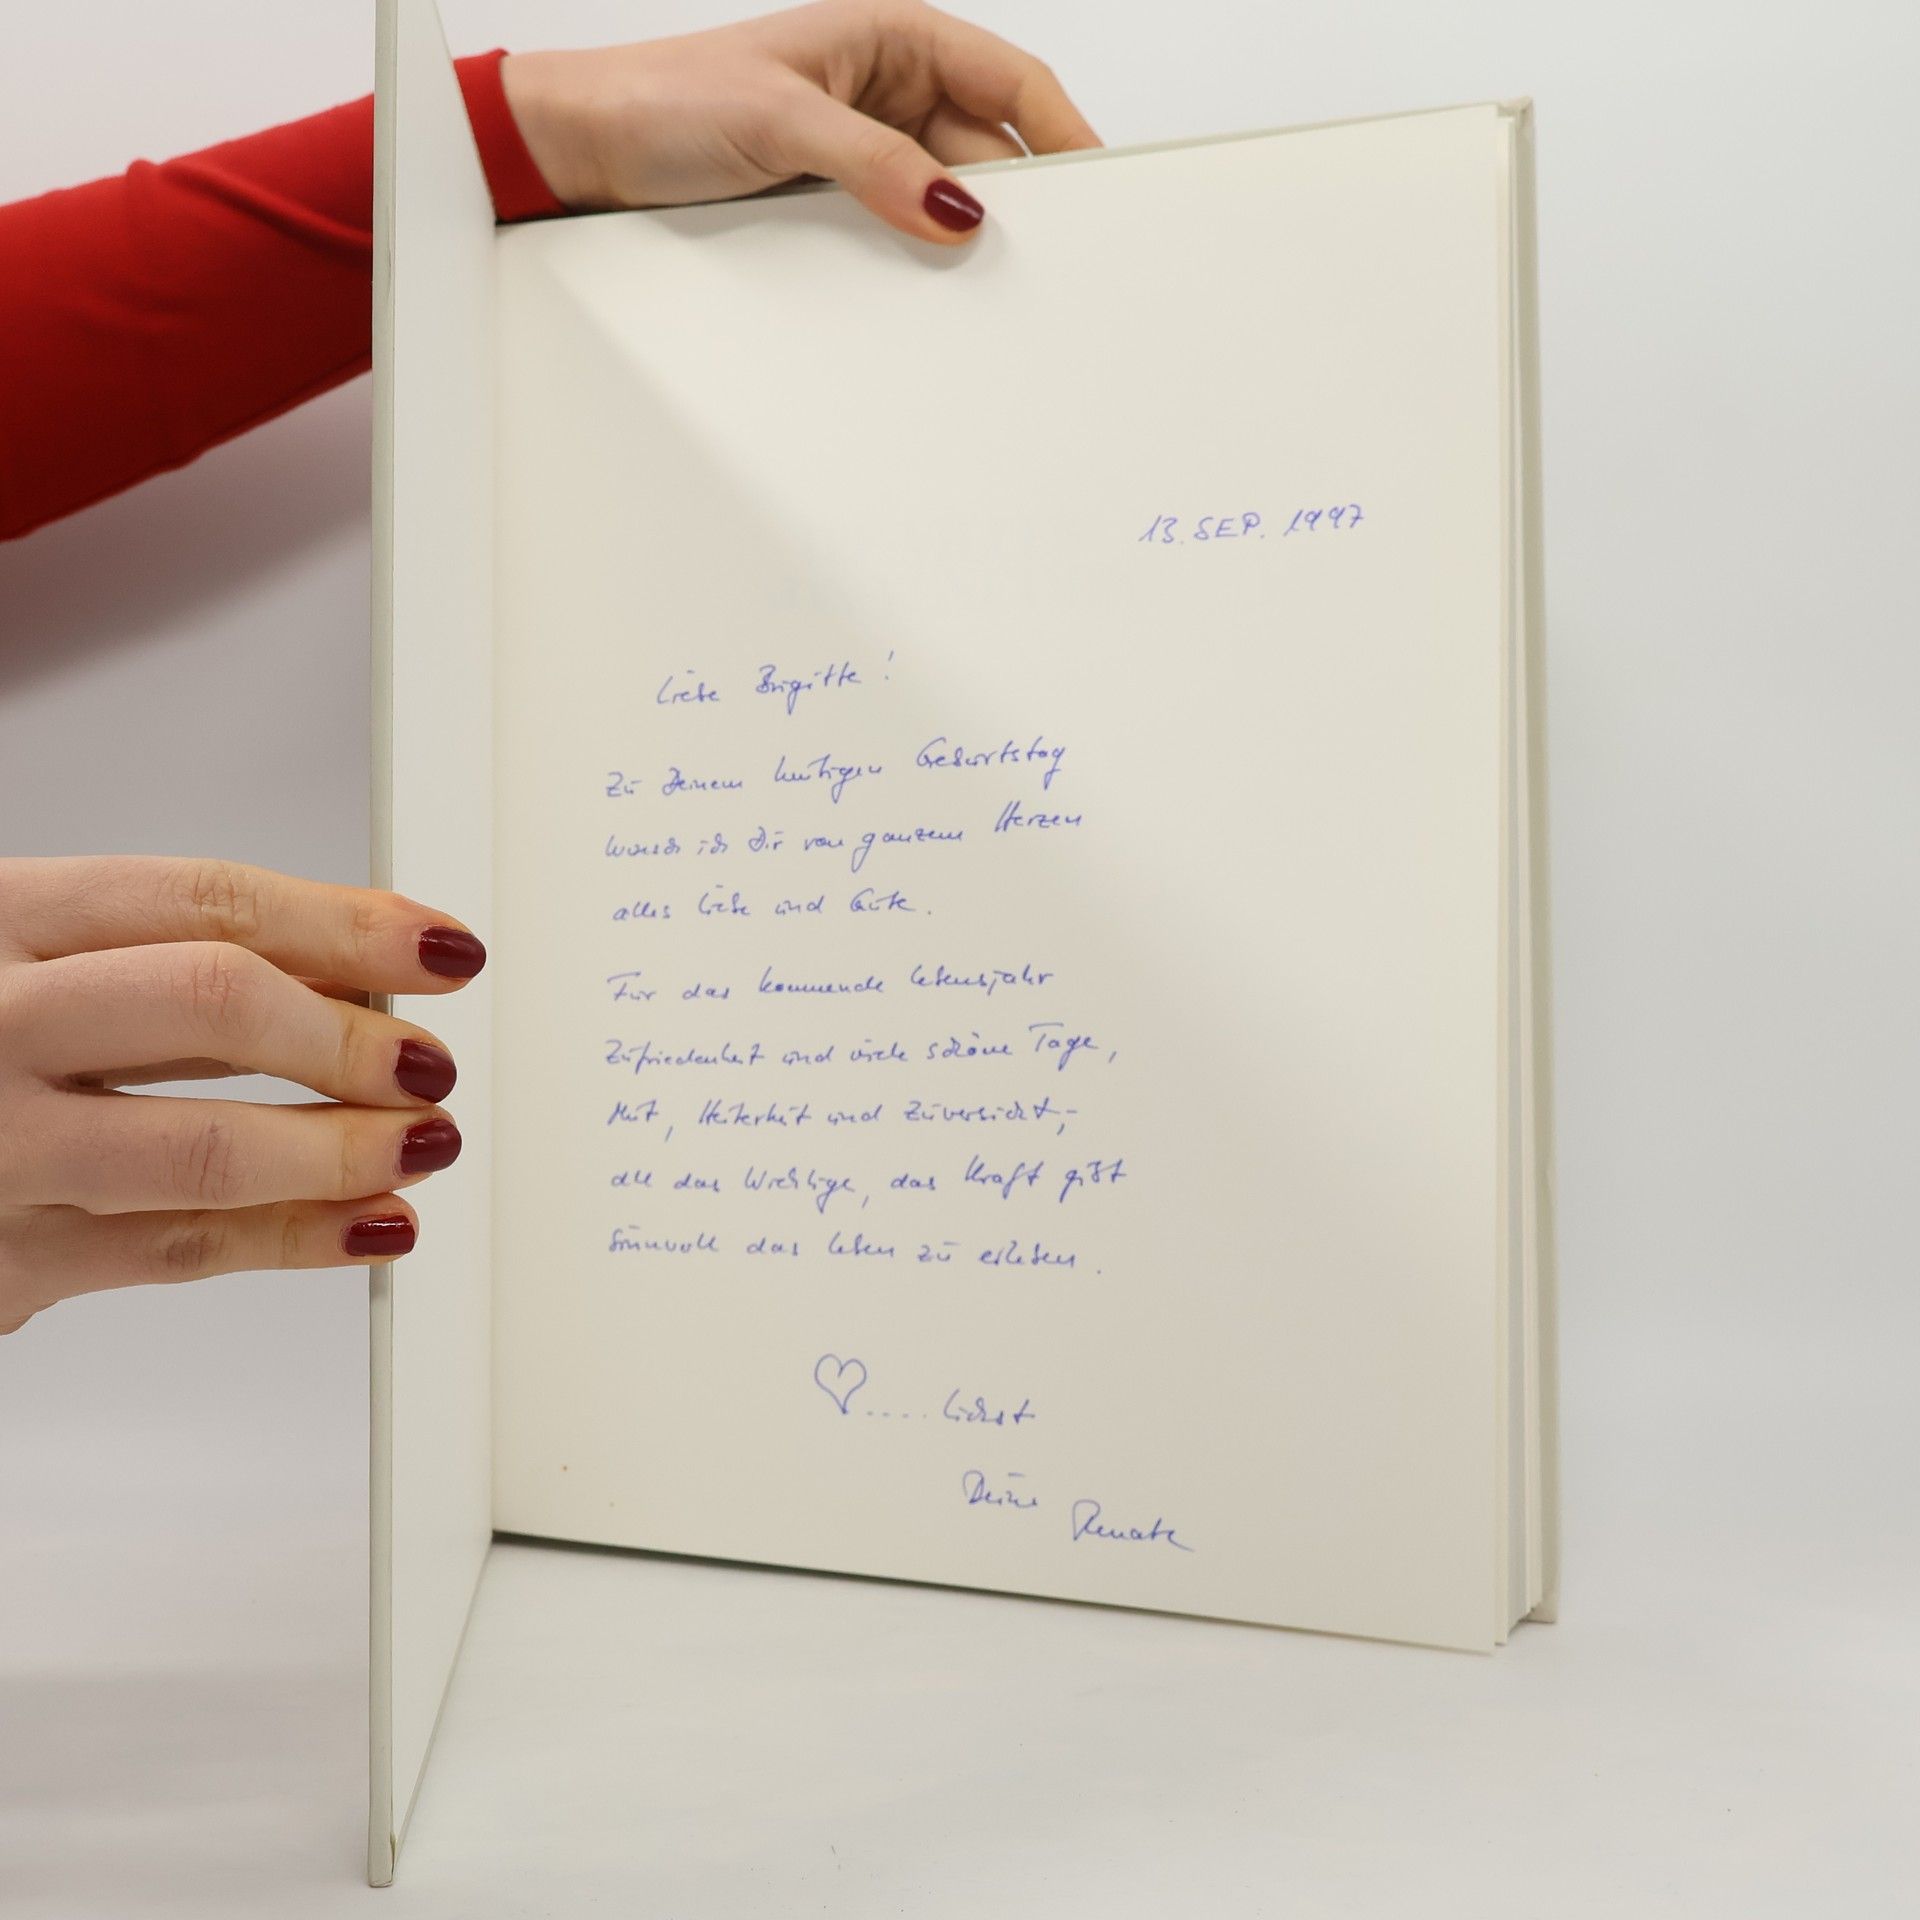 13. SEP. 1997
Liebe Brigitte!
Zu Deinem heutigen Geburtstag
wünsch ich Dir von ganzem Herzen
alles Liebe und Gute.
Für das kommende Lebensjahr
Zufriedenheit und viele schöne Tage,
Mut, Heiterkeit und Zuversicht,-
all das Wichtige, das Kraft gibt
sinnvoll das Leben zu erleben.
♡.... lichst
Deine Renate